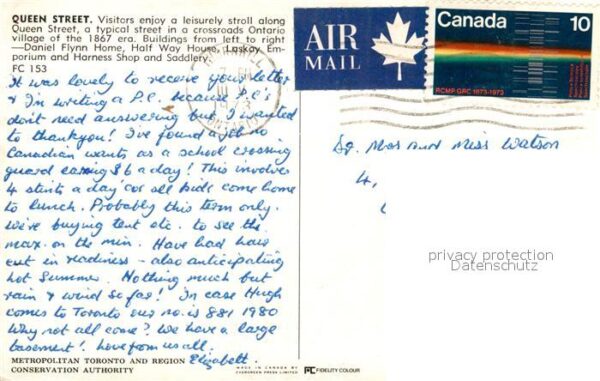 QUEEN STREET. Visitors enjoy a leisurely stroll along
Queen Street, a typical street in a crossroads Ontario
village of the 1867 era. Buildings from left to right
—Daniel Flynn Home, Half Way House, Laskay Em-
porium and Harness Shop and Saddlery.
FC 153
It was lovely to receive your letter
& I'm writing a P.C. because P.C's
don't need answering but I wanted
to thankyou! I've found a job no
Canadian wants as a school crossing
guard earning $6 a day! This involves
4 stints a day 'cos all kids come home
to lunch. Probably this term only.
We're buying tent etc. to see the
max. on the min. Have had hair
cut in readiness - also anticipating
hot Summer. Nothing much but
rain & wind so far! In case Hugh
comes to Toronto our no. is 881 1980
Why not all come? We have a large
basement! Love from us all.
Elizabeth.
METROPOLITAN TORONTO AND REGION
CONSERVATION AUTHORITY
MADE IN CANADA BY
EVERGREEN PRESS LIMITED
FC FIDELITY COLOUR
AIR
MAIL
Canada 10
RCMP GRC 1873-1973
Mrs and Miss Watson
4,
privacy protection
Datenschutz